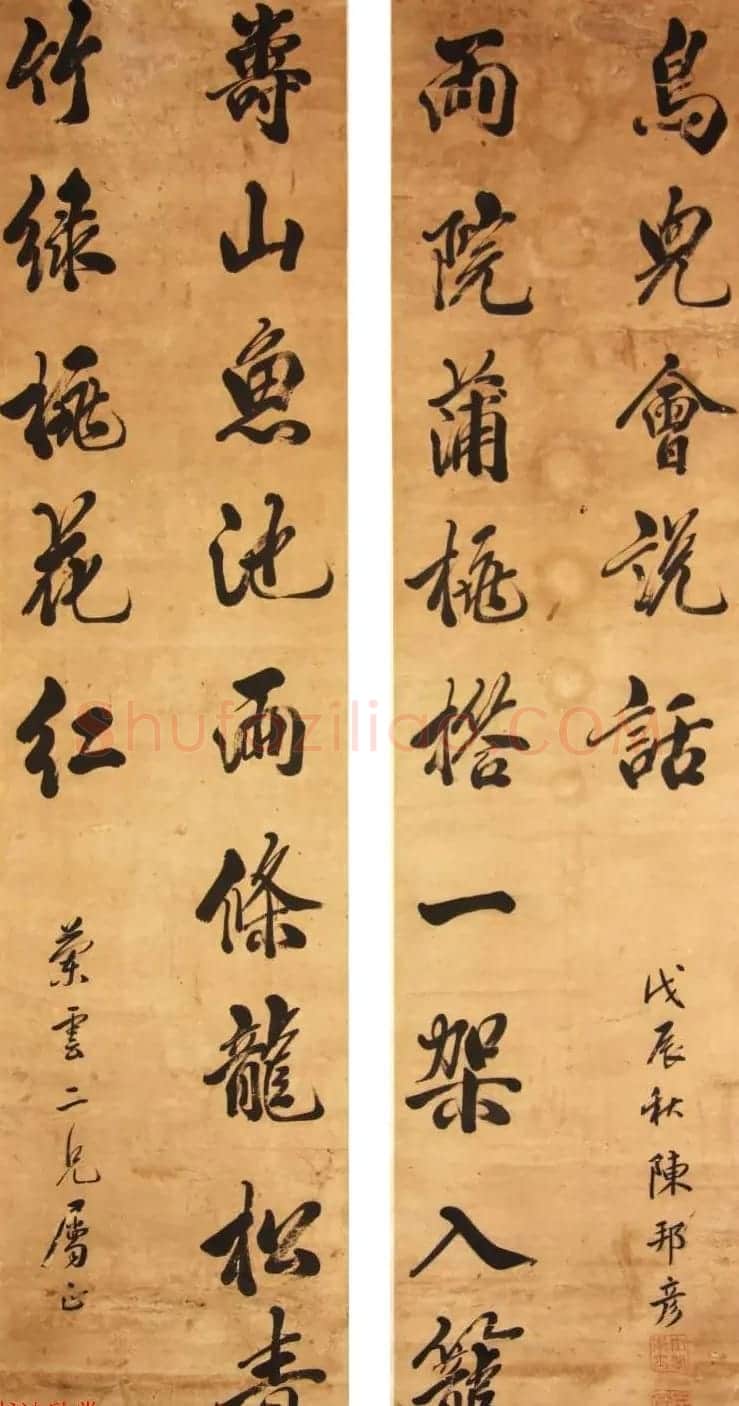 壽山魚池兩條龍松青
竹綠桃花紅
蘭雲二兄屬正
兩院蒲桃搭一架入籠
鳥兒會說話
戊辰秋陳邦彥
Shufaziliao.COM